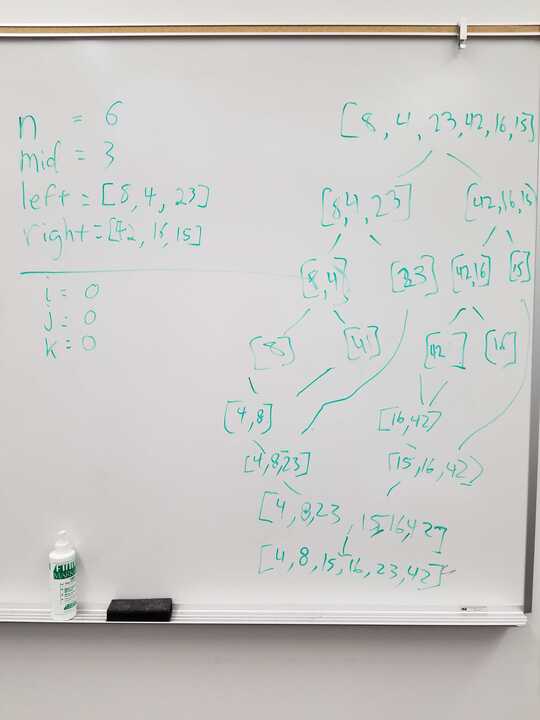 n = 6
mid = 3
left = [8, 4, 23]
right = [42, 16, 15]
i = 0
j = 0
k = 0
[8, 4, 23, 42, 16, 15]
[8, 4, 23] [42, 16, 15]
[8, 4] [23] [42, 16] [15]
[8] [4] [42] [16]
[4, 8] [16, 42]
[4, 8, 23] [15, 16, 42]
[4, 8, 23, 15, 16, 42]
[4, 8, 15, 16, 23, 42]